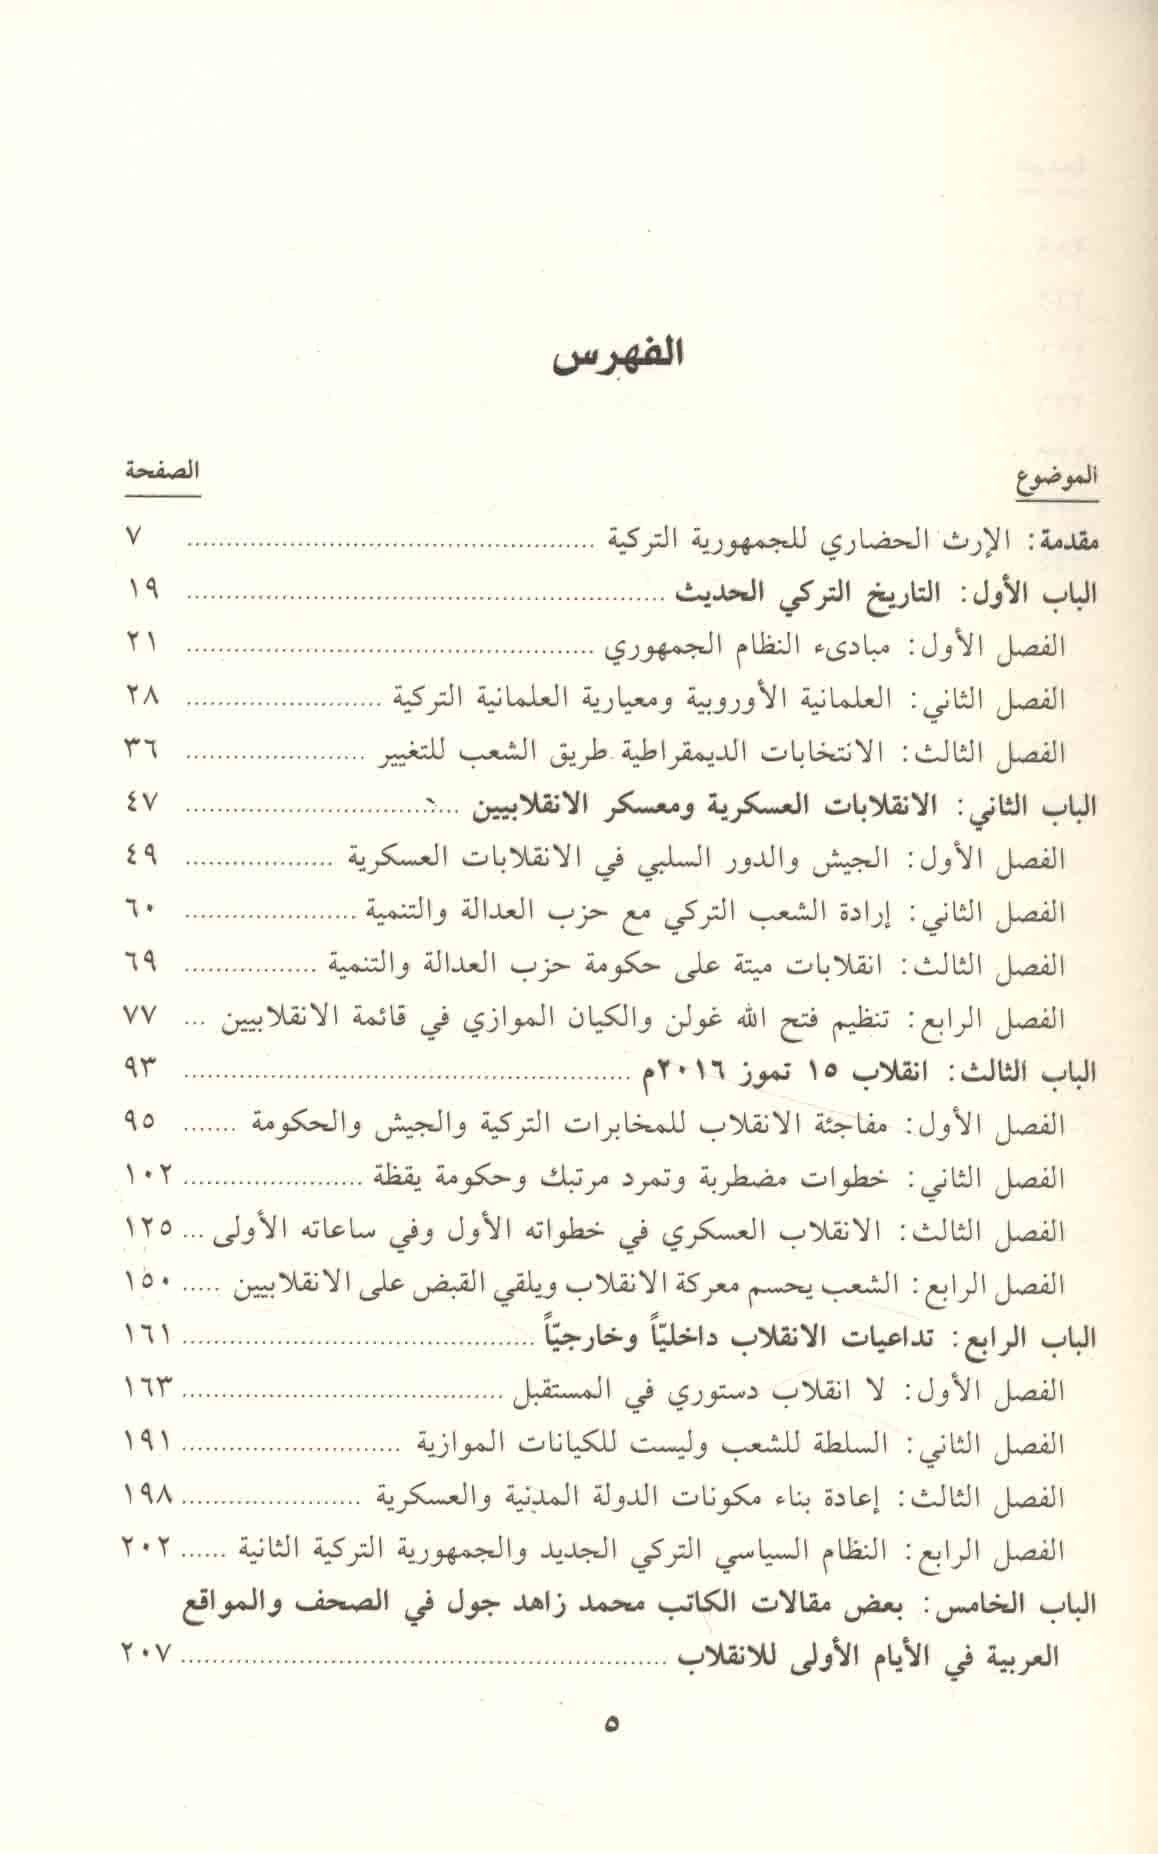 الفهرس
الموضوع الصفحة
مقدمة: الإرث الحضاري للجمهورية التركية ........ ٧
الباب الأول: التاريخ التركي الحديث ........ ١٩
الفصل الأول: مبادىء النظام الجمهوري ........ ٢١
الفصل الثاني: العلمانية الأوروبية ومعيارية العلمانية التركية ........ ٢٨
الفصل الثالث: الانتخابات الديمقراطية طريق الشعب للتغيير ........ ٣٦
الباب الثاني: الانقلابات العسكرية ومعسكر الانقلابيين ........ ٤٧
الفصل الأول: الجيش والدور السلبي في الانقلابات العسكرية ........ ٤٩
الفصل الثاني: إرادة الشعب التركي مع حزب العدالة والتنمية ........ ٦٠
الفصل الثالث: انقلابات ميتة على حكومة حزب العدالة والتنمية ........ ٦٩
الفصل الرابع: تنظيم فتح الله غولن والكيان الموازي في قائمة الانقلابيين ... ٧٧
الباب الثالث: انقلاب ١٥ تموز ٢٠١٦م ........ ٩٣
الفصل الأول: مفاجئة الانقلاب للمخابرات التركية والجيش والحكومة ....... ٩٥
الفصل الثاني: خطوات مضطربة وتمرد مرتبك وحكومة يقظة ........ ١٠٢
الفصل الثالث: الانقلاب العسكري في خطواته الأول وفي ساعاته الأولى ... ١٢٥
الفصل الرابع: الشعب يحسم معركة الانقلاب ويلقي القبض على الانقلابيين ..... ١٥٠
الباب الرابع: تداعيات الانقلاب داخليّاً وخارجيّاً ........ ١٦١
الفصل الأول: لا انقلاب دستوري في المستقبل ........ ١٦٣
الفصل الثاني: السلطة للشعب وليست للكيانات الموازية ........ ١٩١
الفصل الثالث: إعادة بناء مكونات الدولة المدنية والعسكرية ........ ١٩٨
الفصل الرابع: النظام السياسي التركي الجديد والجمهورية التركية الثانية ...... ٢٠٢
الباب الخامس: بعض مقالات الكاتب محمد زاهد جول في الصحف والمواقع
العربية في الأيام الأولى للانقلاب ........ ٢٠٧
٥